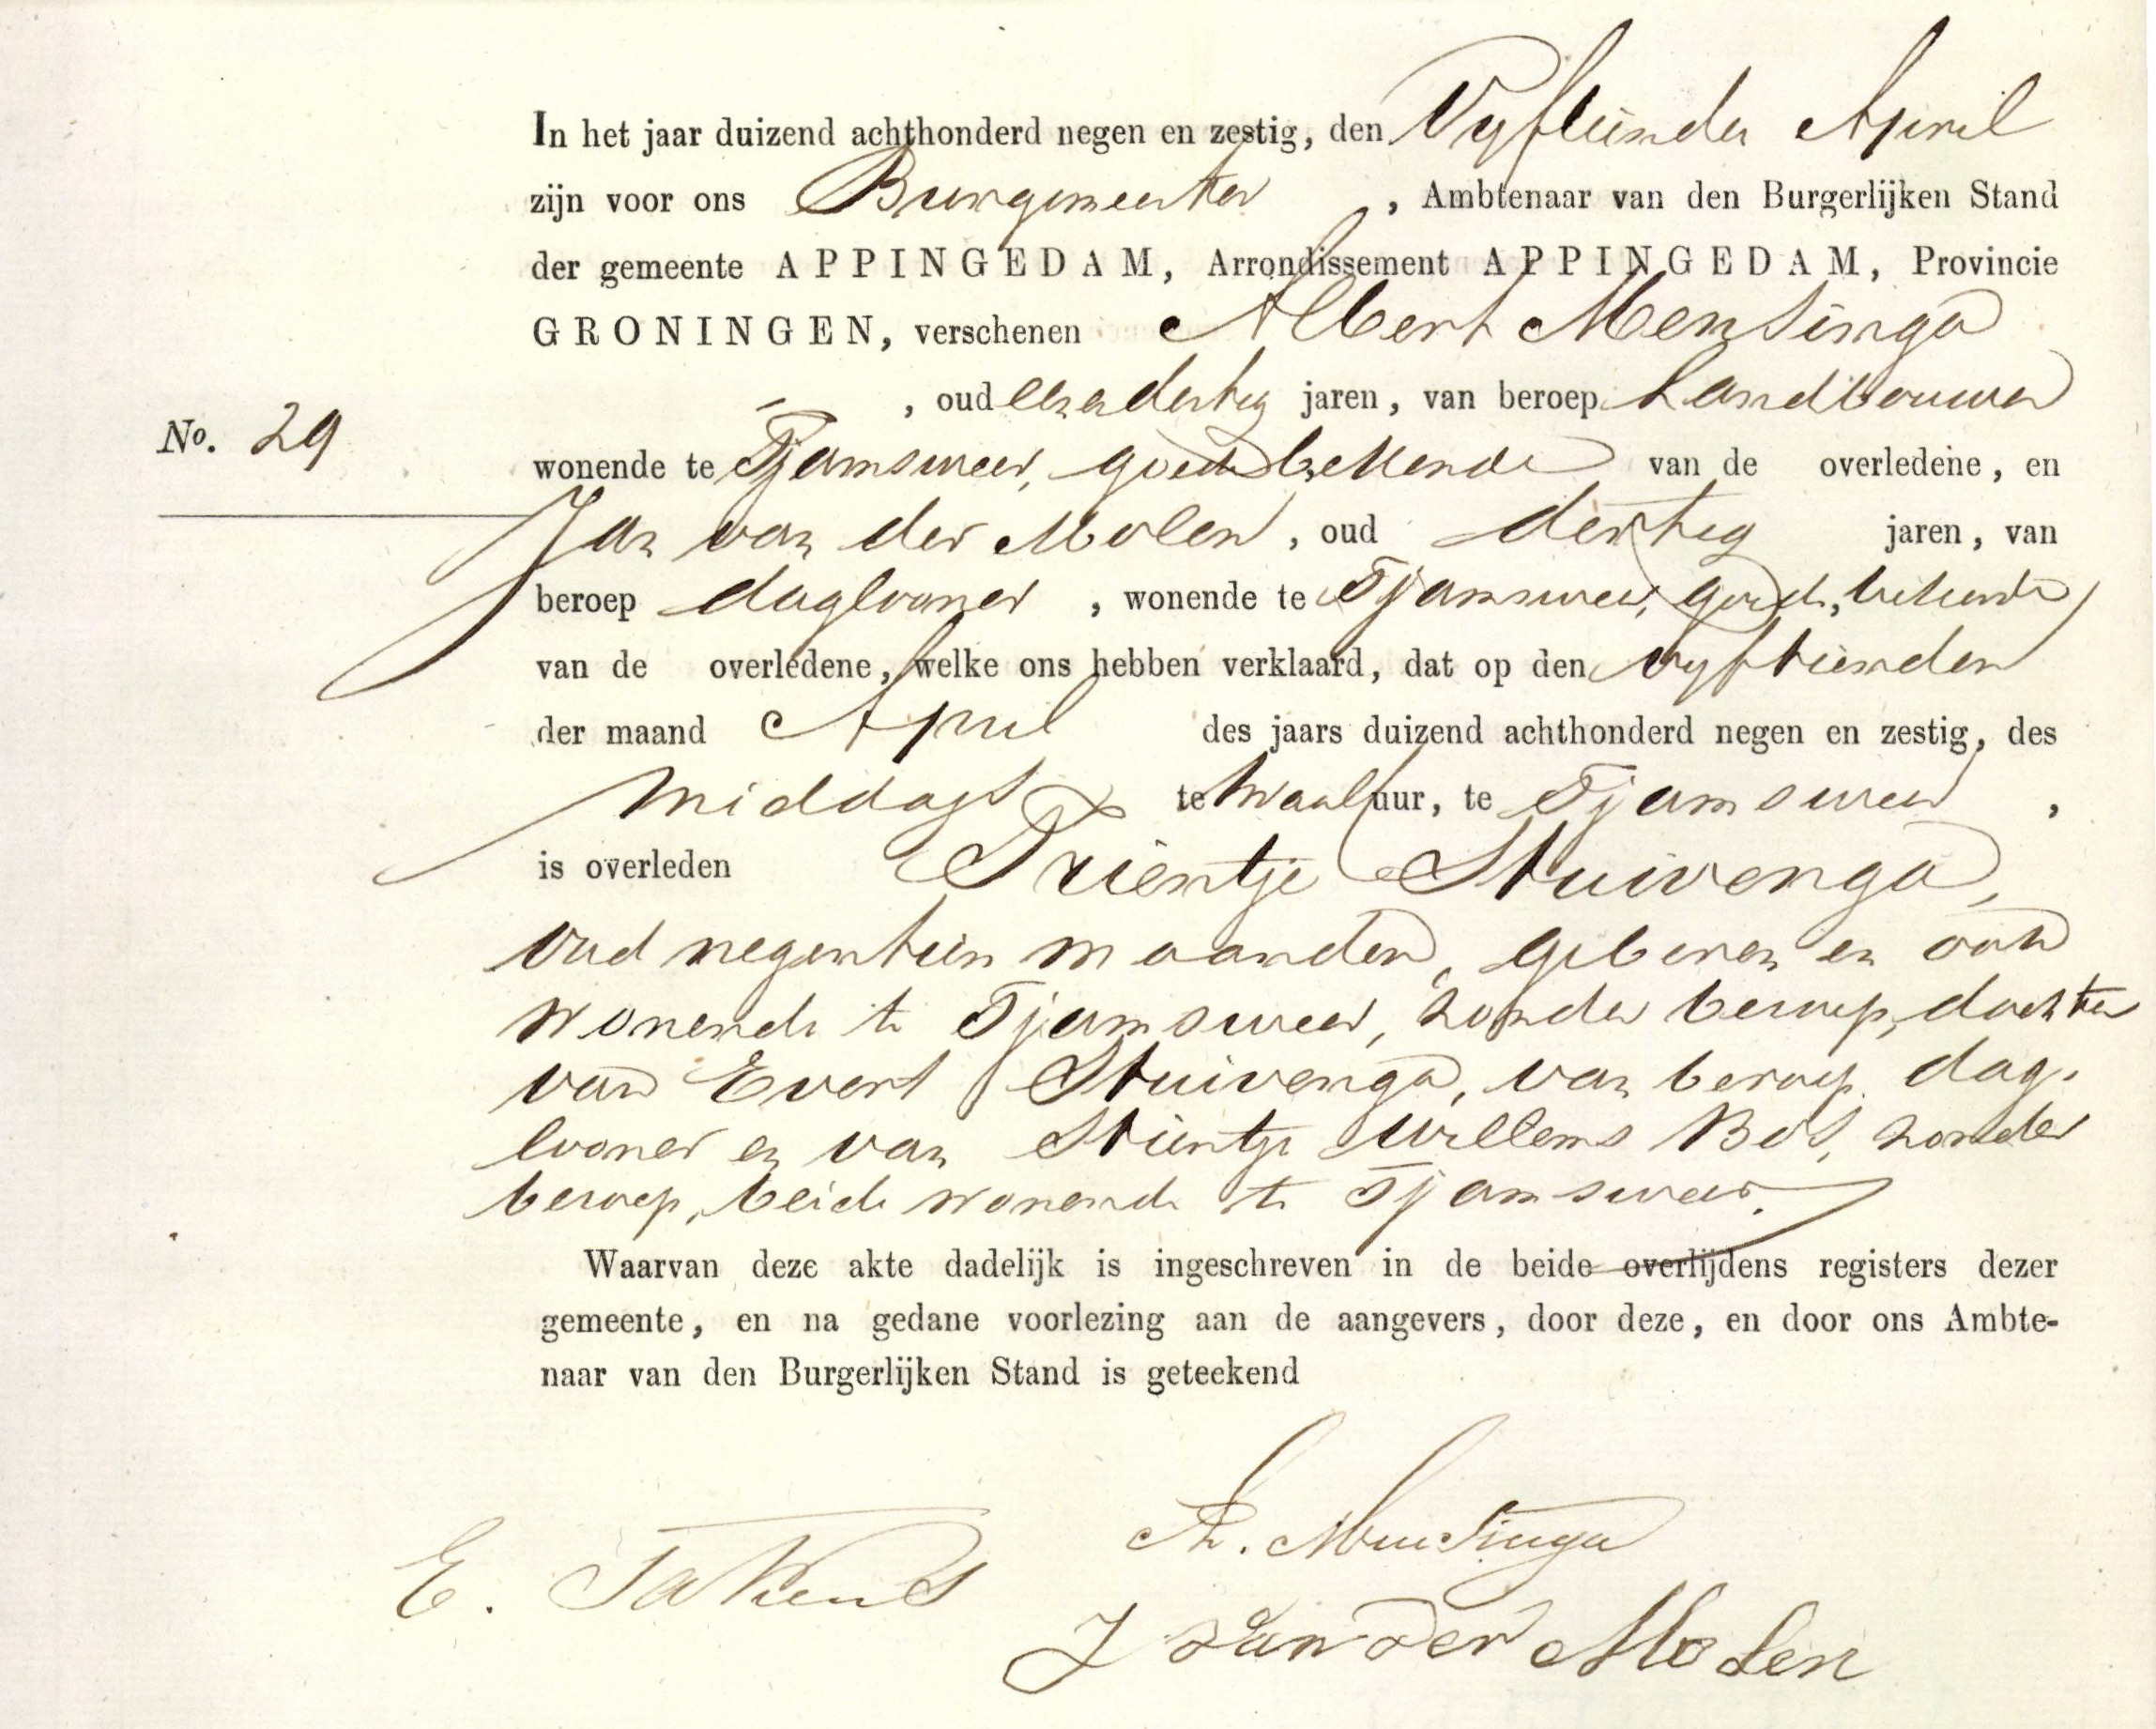 In het jaar duizend achthonderd negen en zestig, den Vyftiende April
zijn voor ons Burgemeester , Ambtenaar van den Burgerlijken Stand
der gemeente APPINGEDAM, Arrondissement APPINGEDAM, Provincie
GRONINGEN, verschenen Albert Mensinga
, oud jaren, van beroep Landbouwer
No. 29
wonende te Tjamsweer, goede bekende van de overledene, en
Jan van der Molen, oud dertig jaren, van
beroep daglooner , wonende te Tjamsweer, goede bekende
van de overledene, welke ons hebben verklaard, dat op den vyftienden
der maand April des jaars duizend achthonderd negen en zestig, des
middags te twaalf uur, te Tjamsweer ,
is overleden Trientje Stuivenga,
oud negentien maanden, geboren en ook
wonende te Tjamsweer, zonder beroep, dochter
van Evert Stuivenga, van beroep dag-
looner en van Stientje Willems Bos, zonder
beroep, beide wonende te Tjamsweer.
Waarvan deze akte dadelijk is ingeschreven in de beide overlijdens registers dezer
gemeente, en na gedane voorlezing aan de aangevers, door deze, en door ons Ambte-
naar van den Burgerlijken Stand is geteekend
A. Mensinga
E. Takens
J van der Molen